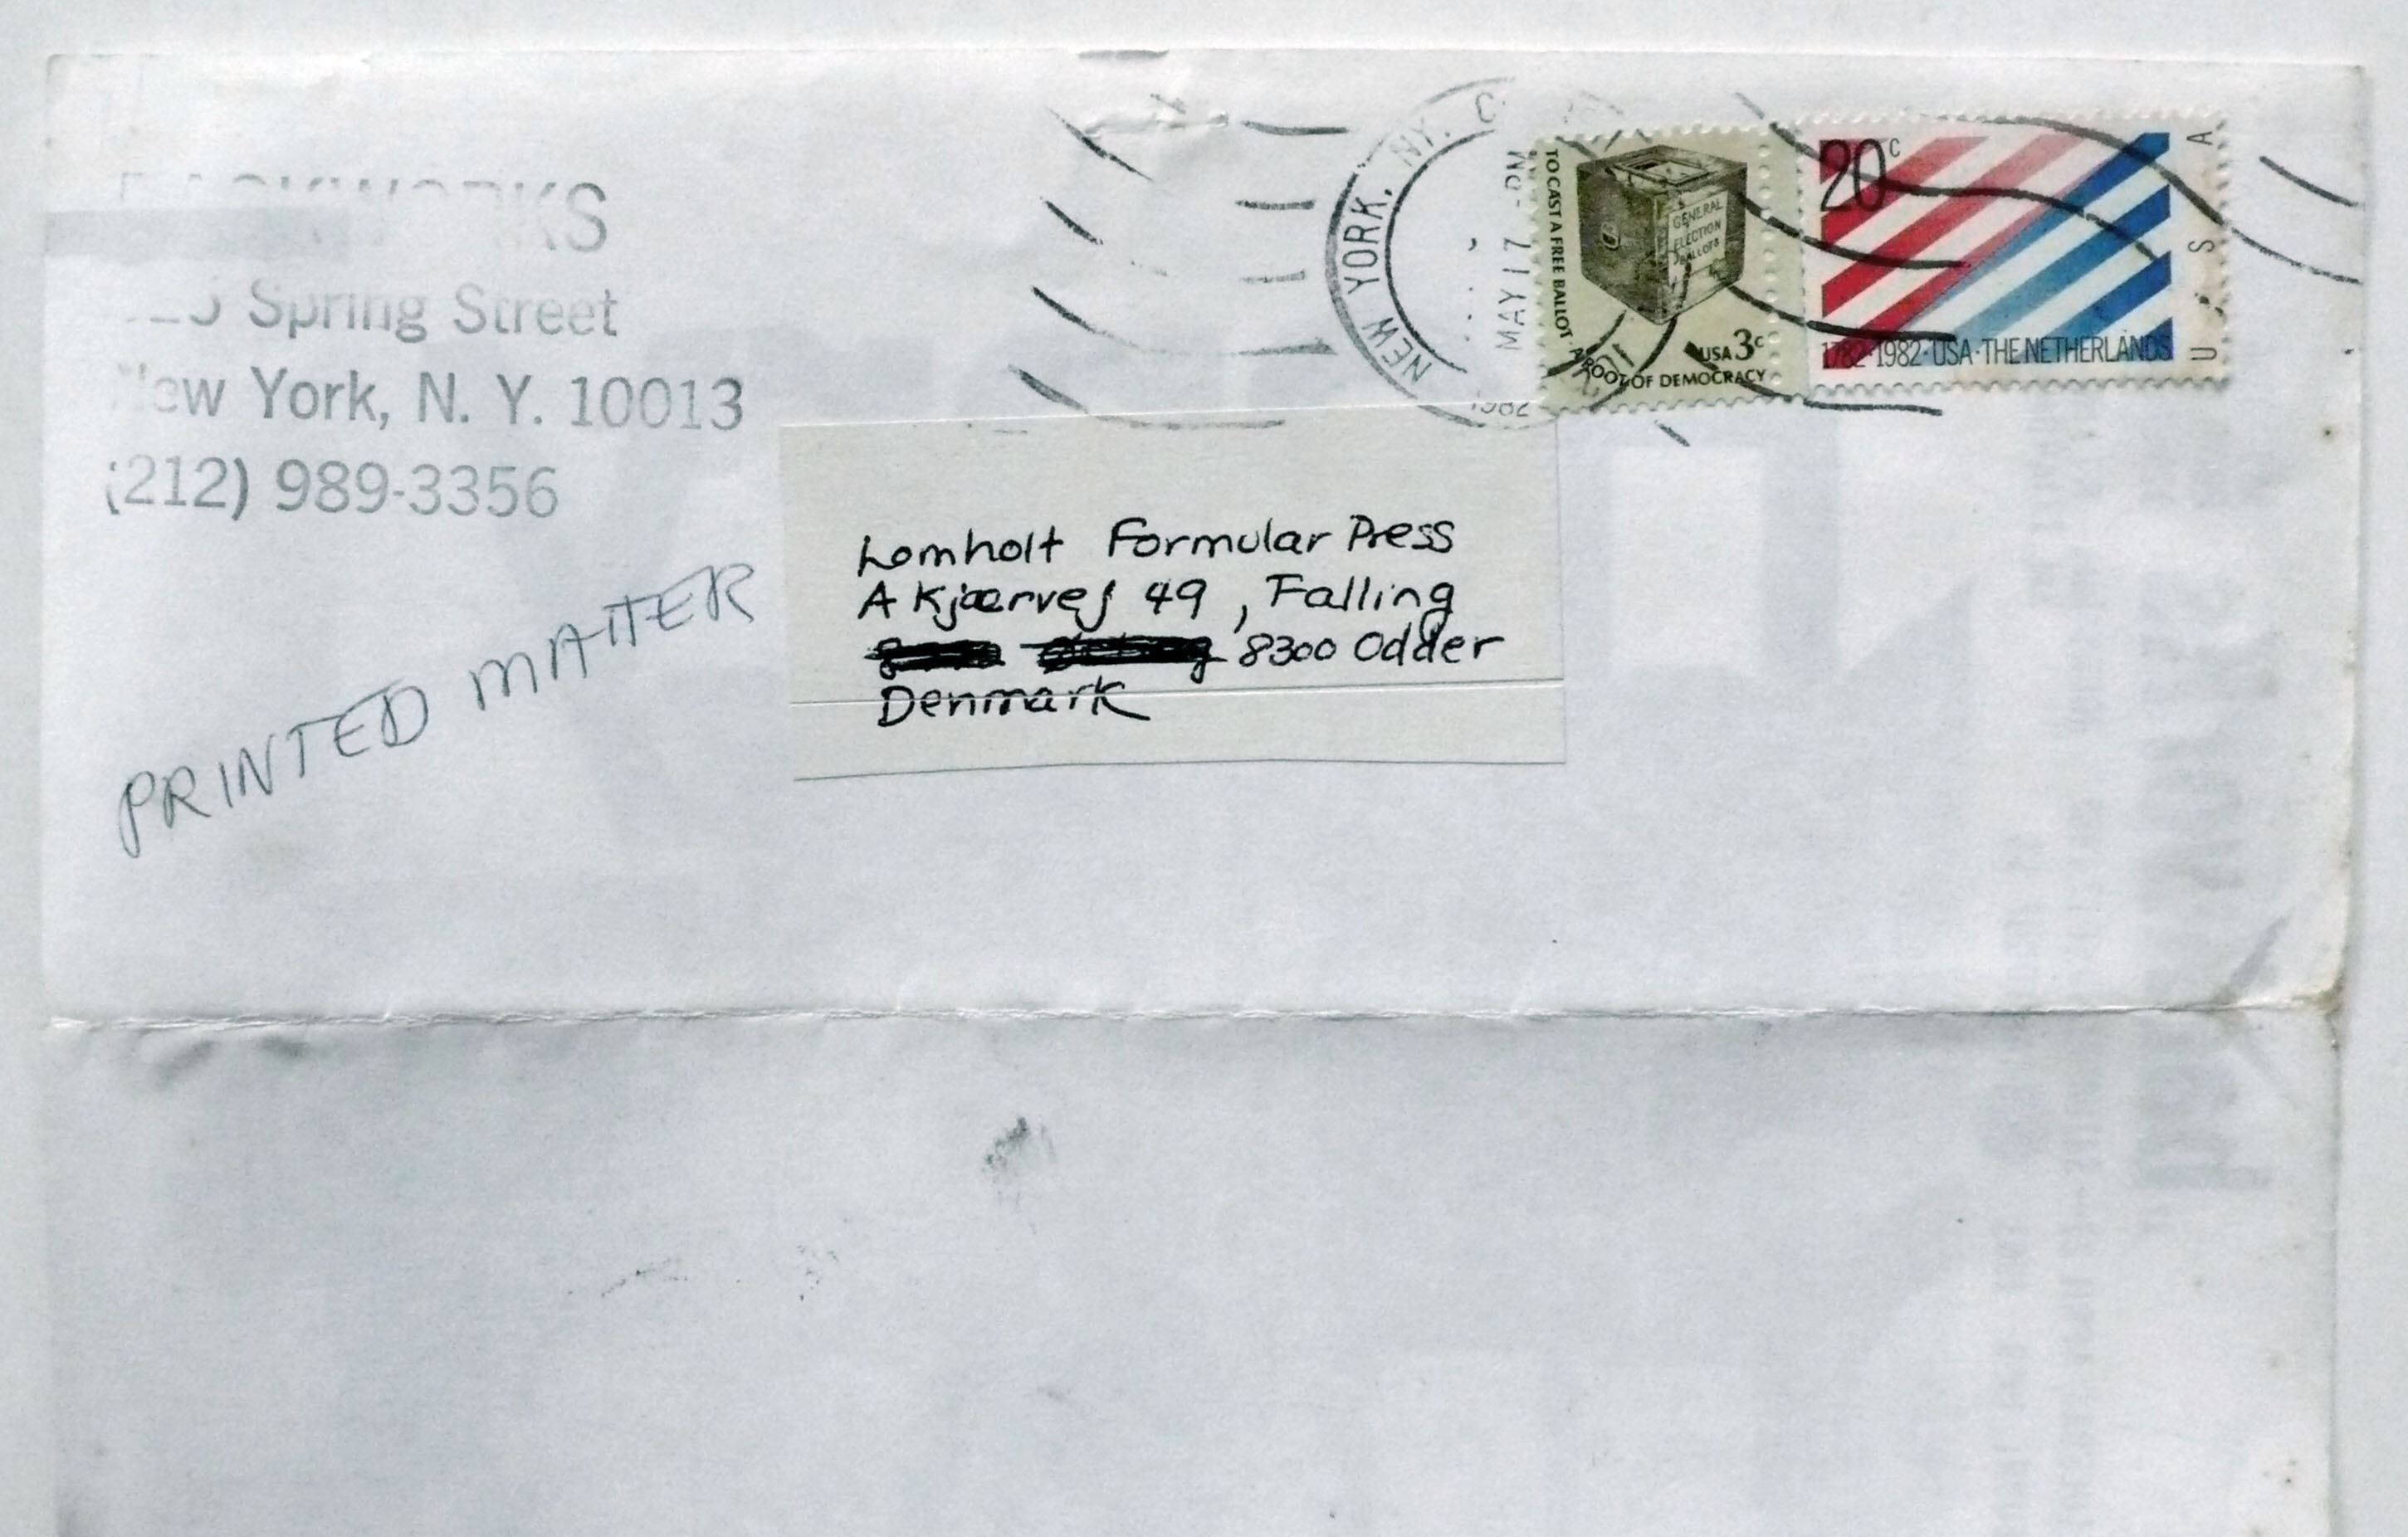 Spring Street
New York, N. Y. 10013
(212) 989-3356
PRINTED MATTER
NEW YORK, NY.
MAY 17
PM
1982
TO CAST A FREE BALLOT · A ROOT OF DEMOCRACY
GENERAL
ELECTION
BALLOTS
USA 3c
20c
1782·1982·USA·THE NETHERLANDS
USA
Lomholt Formular Press
A Kjærvej 49, Falling
8300 Odder
Denmark